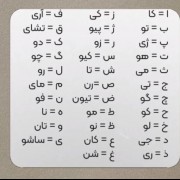 ا = کا
ب = تو
پ = ژی
ت = هو
ث = می
ج = تی
چ = گو
ح = کو
خ = لو
د = جی
ذ = ری
ز = کی
ژ = پیو
ر = زو
س = کیو
ش = تا
ص = رن
ض = تیون
ط = مو
ظ = نو
ع = کان
غ = شن
ف = آری
ق = تشای
ک = دو
گ = چو
ل = رو
م = مای
ن = فو
ه = نا
و = تان
ی = ساشو